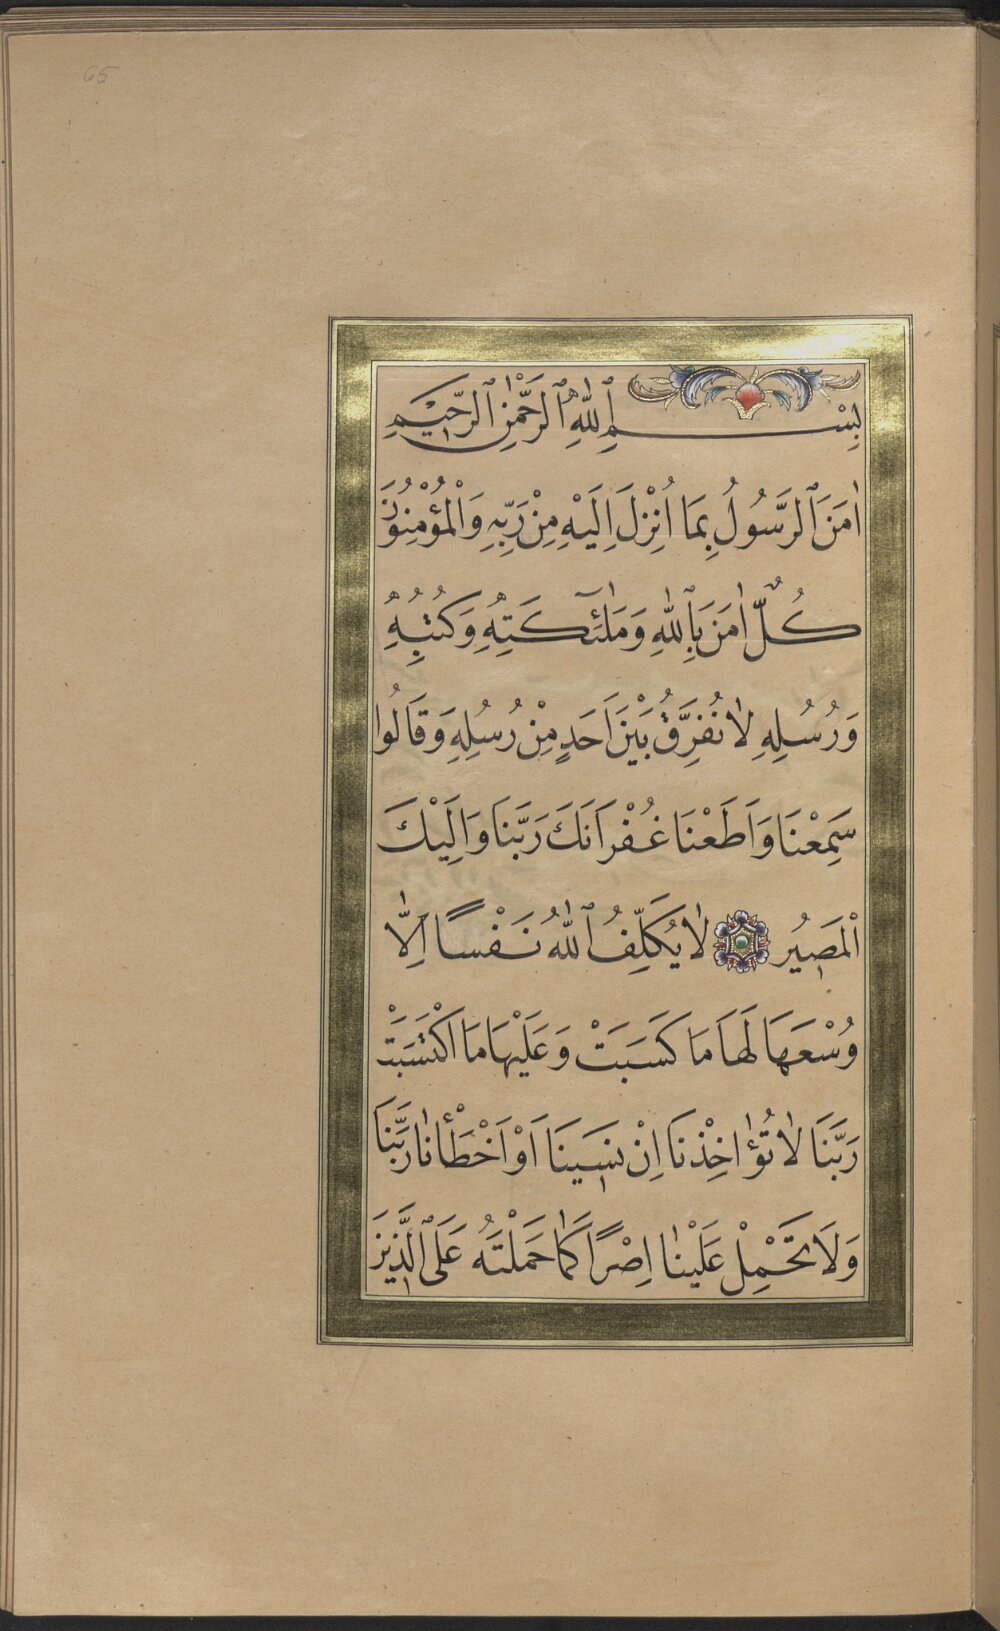 65
بِسْمِ ٱللّٰهِ ٱلرَّحْمٰنِ ٱلرَّحِيمِ
اٰمَنَ ٱلرَّسُولُ بِمَا اُنْزِلَ اِلَيْهِ مِنْ رَبِّهِ وَالْمُؤْمِنُونَ
كُلٌّ اٰمَنَ بِٱللّٰهِ وَمَلٰئِٓكَتِهِ وَكُتُبِهِ
وَرُسُلِهِ لٰا نُفَرِّقُ بَيْنَ اَحَدٍ مِنْ رُسُلِهِ وَقَالُوا
سَمِعْنَا وَاَطَعْنَا غُفْرَانَكَ رَبَّنَا وَاِلَيْكَ
الْمَصِيرُ لٰا يُكَلِّفُ ٱللّٰهُ نَفْسًا اِلّٰا
وُسْعَهَا لَهَا مَا كَسَبَتْ وَعَلَيْهَا مَا اكْتَسَبَتْ
رَبَّنَا لٰا تُؤٰاخِذْنَا اِنْ نَسِينَا اَوْ اَخْطَأْنٰا رَبَّنَا
وَلَا تَحْمِلْ عَلَيْنٰا اِصْرًا كَمٰا حَمَلْتَهُ عَلَى ٱلَّذِينَ